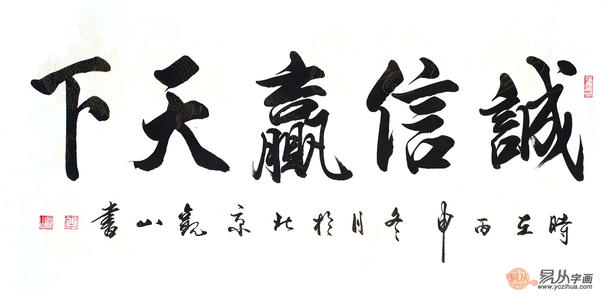 誠信贏天下
時在丙申冬月於北京觀山書
易从字画
www.yczihua.com